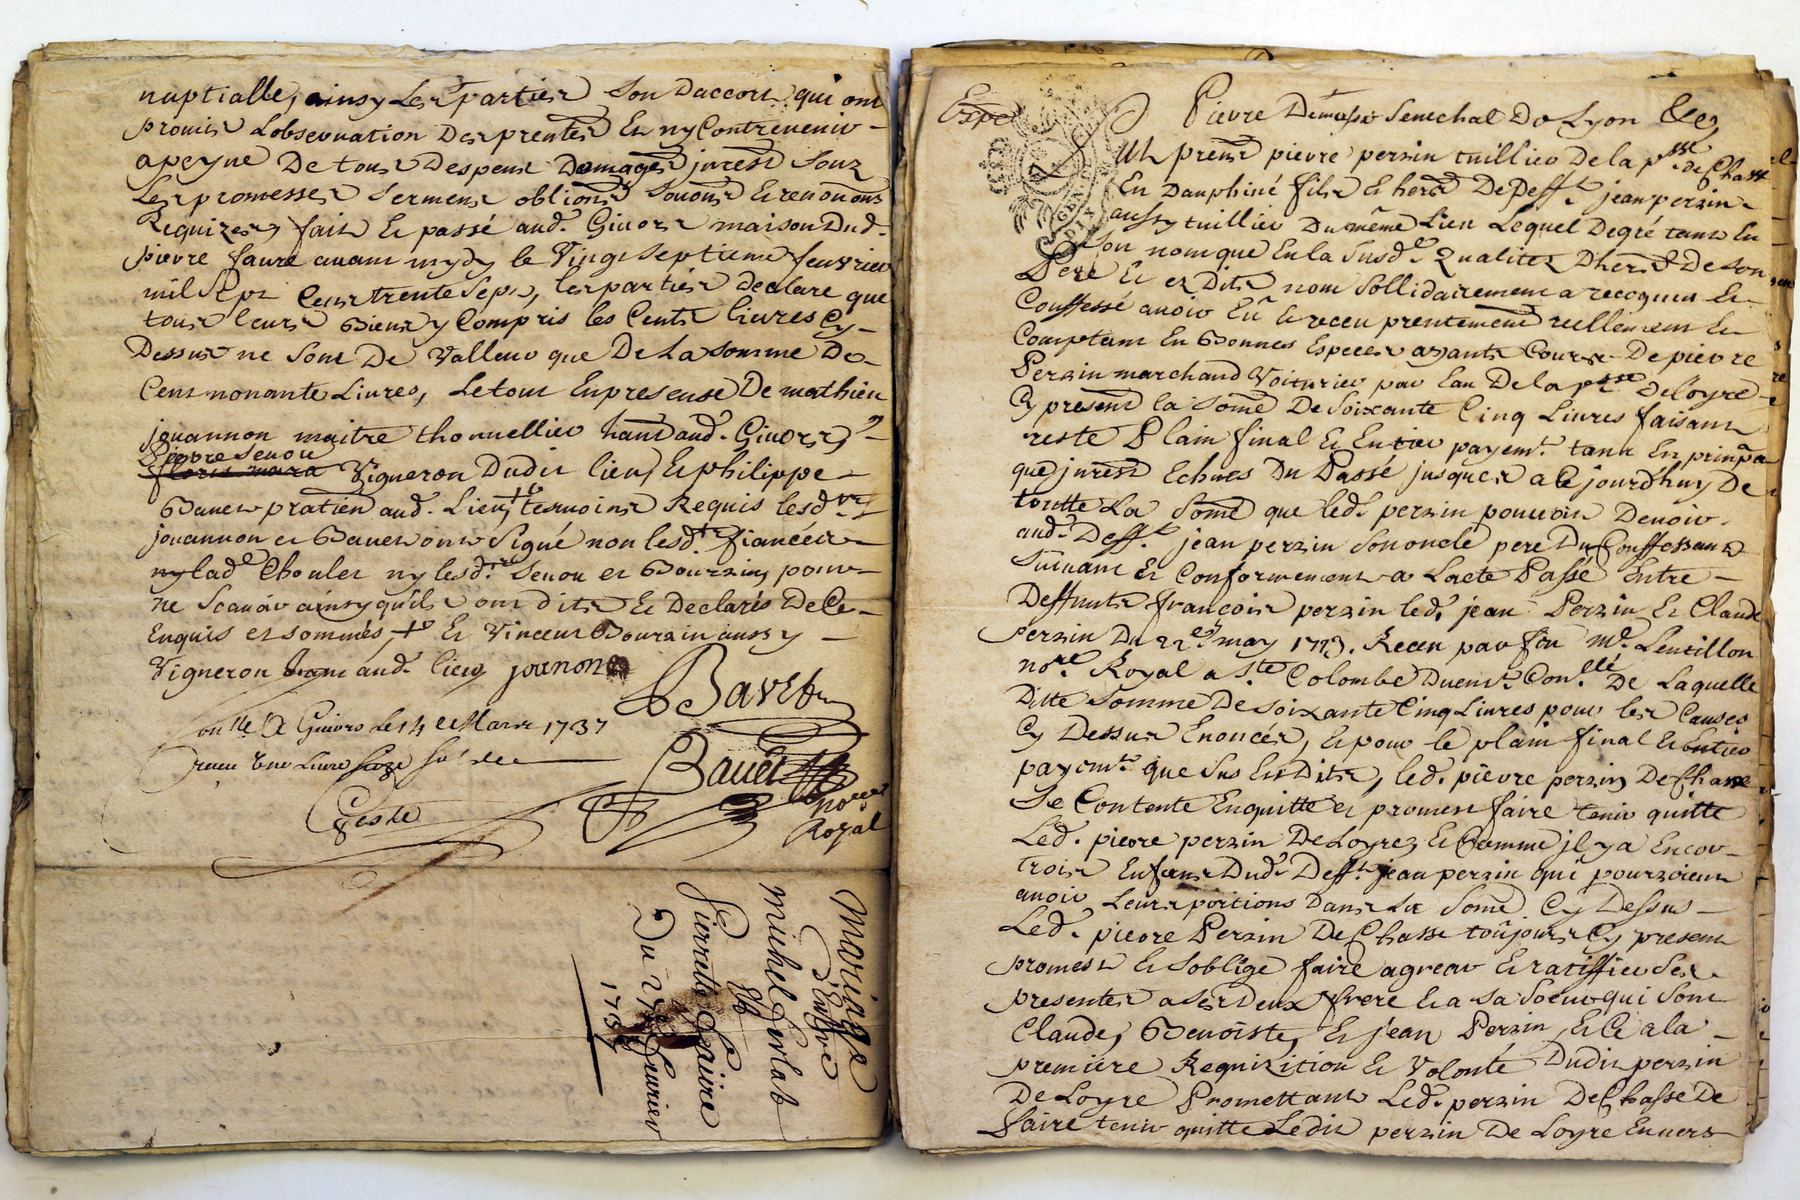 nuptialle, ainsy Les parties Son Daccort qui ont
promis Lobseruation Des pr̃entes Et ny Contreuenir
apeyne De tous Despens Domages jnterest Souz
Les promesses Sermens oblions Et renonõns
Requizes, fait Et passé aud. Giuors maison Dud.
pierre faure auant mydy le Vingt Septieme feuvrier
mil Sept Cens trente Sept, les parties declare que
tous leurs Biens y Compris les Cents livres Cy
Dessus ne Sont De Valleur que De La somme De
Cent nonante Livres, Le tout En presence De mathieu
jouannon maitre thonnellier hant aud. Giuors,
Pierre Senou
Vigneron Dudit lieu, Et philippe
Bauet praticien aud. Lieu, temoins Requis lesd.
jouannon et Bauet ont Signé non lesd. fiancéés
ny lad.e Choulet ny lesd. Senou et Bourzin, pour
ne Scauoir ainsy quils ont dits Et Declarés De Ce
Enquis et sommés, Et Vincent Bourzin aussy
Vigneron aud. lieu jounon
Bavet
Con.lle A Giuors Le 14 de Mars 1737
Receu Une Livre
Geste
Bauet
no.re
Royal
Mariage
D'entre
michel
&
Pierrette Faure
Du 27e feurier
1737
Expé
Pierre Senechal De Lyon
Ut pierre perzin tuillier De la p.sse de Chasse
En Dauphiné fils Et De Deff.t jean perzin
aussy tuillier Du même Lieu Lequel Degré tant En
Son nom que En la Susd.e Qualité Dherit. De Son
Pere Et es Dits nom Sollidairement a recogneu Et
Conffessé auoir Eû Et receu prentement reellement Et
Comptant En Bonnes Especes ayants Cours De pierre
Perzin marchand Voiturier par Eau De la p.sse De Loyre
Cy present la Somẽ De Soixante Cinq Livres faisant
reste Plain final Et Entier payem.t tant En prinpa
que jnterest Echues Du Passé jusques a Ce jourd'huy De
toutte La Somẽ que led. perzin pouuoit Deuoir
aud. Deff.t jean perzin Son oncle pere Du Conffessant
Suiuant Et Conformement a Lacte Passé Entre
Deffunts françois perzin led. jean Perzin Et Claude
Perzin Du 22.e may 1713. Receu par feu M.e Lentillon
no.re Royal a S.te Colombe Duem.t Con.llé De Laquelle
Ditte Somme De Soixante Cinq Livres pour les Causes
Cy Dessus Enoncés, Et pour le plain final Et Entier
payem.t que Sus Est Dits, led. pierre perzin De Chasse
Se Contente Enquitte et promest faire tenir quitte
Led. pierre perzin De Loyrez Et Comme jl y a Encor
trois Enfans Dud. Deff.t jean perzin qui pourroient
auoir Leurs portions Dans La Somẽ Cy Dessus
Led. pierre Perzin De Chasse toujours Cy present
promest Et Soblige faire agreer Et ratiffier Ses
presentes a Ses Deux frere Et a Sa Soeur qui Sont
Claude, Benoiste, Et jean Perzin, Et Ce a la
premiere Requizition Et Volonté Dudit perzin
De Loyre Promettant Led. perzin De Chasse De
faire tenir quitte Ledit perzin De Loyre Enuers